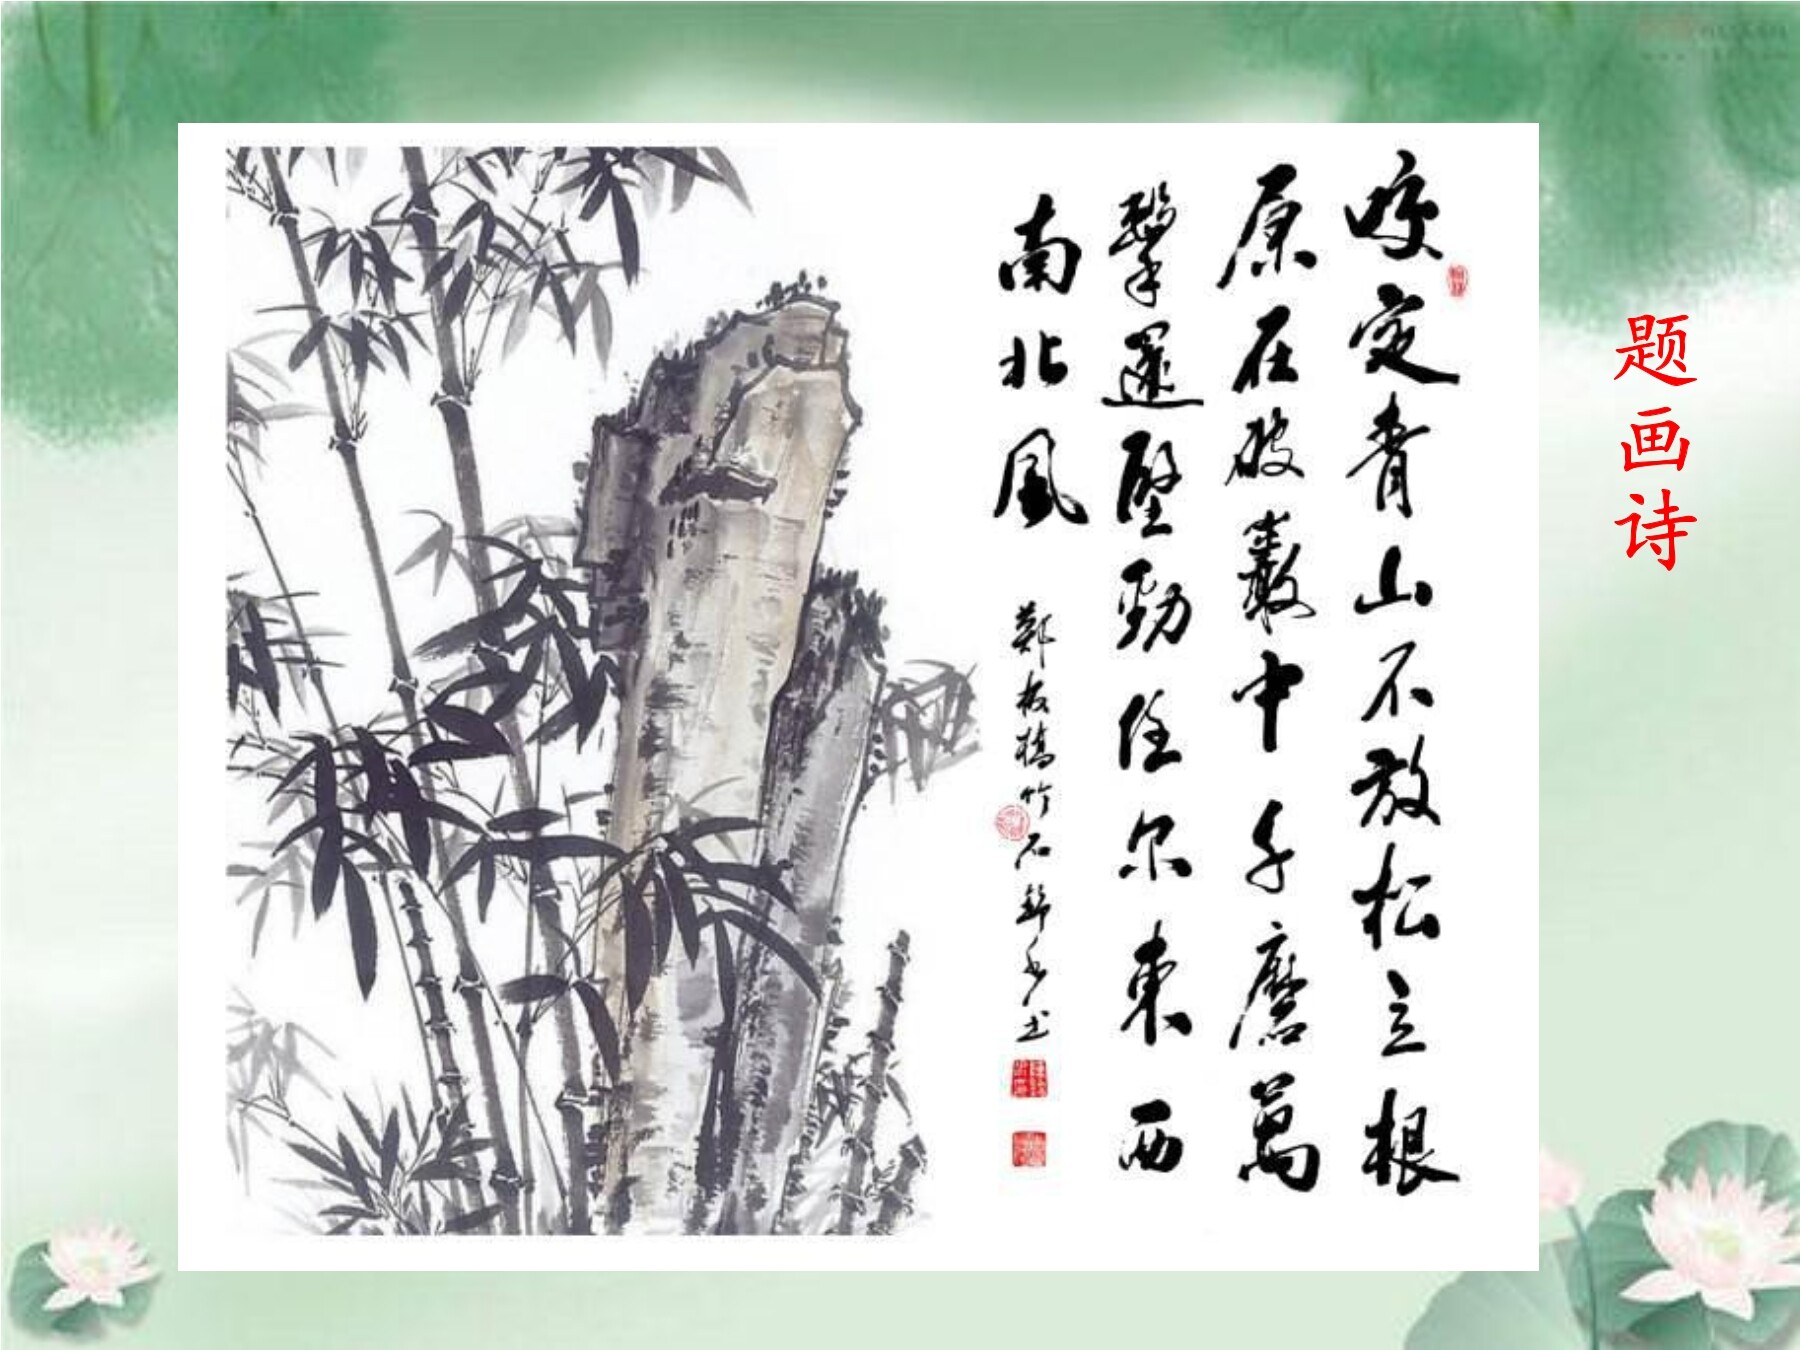 题画诗
咬定青山不放松立根
原在破巖中千磨萬
擊還堅勁任尔東西
南北風
鄭板橋竹石